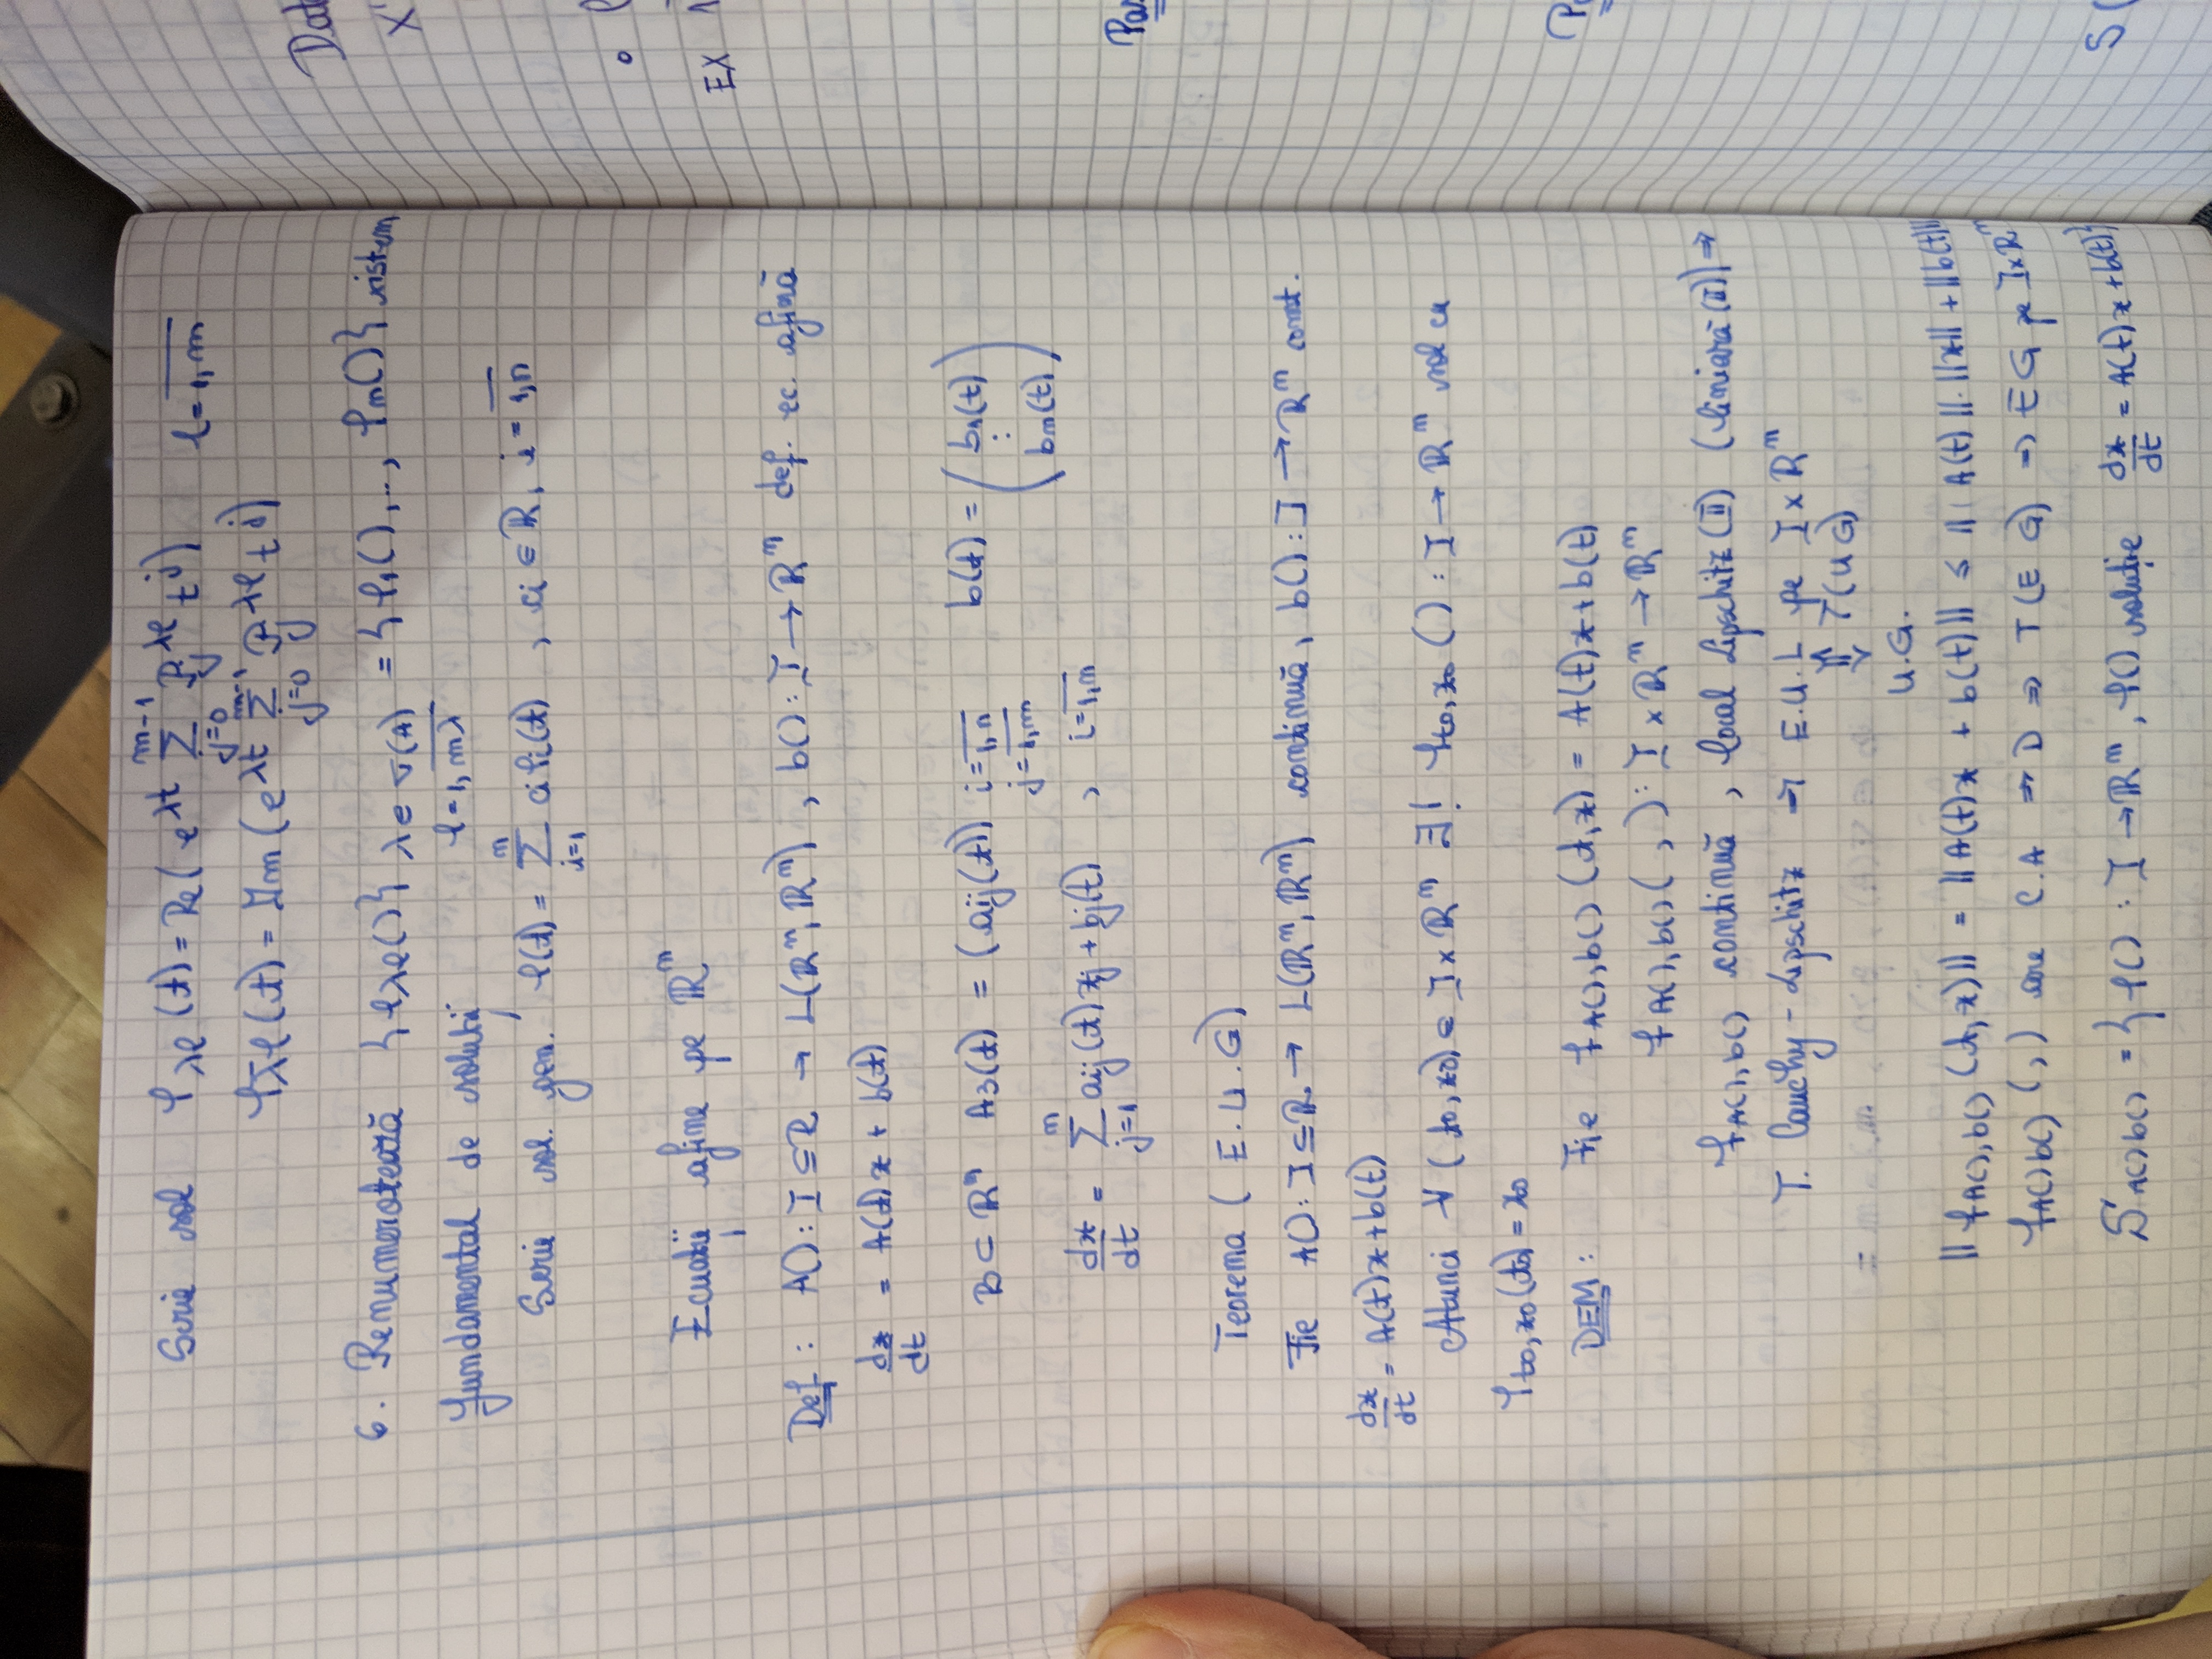 Scrie sol φ_λℓ(t) = Re( e^λt Σ_{j=0}^{m-1} P_j^λℓ t^j ) ℓ = \overline{1,m}
φ_λ̄ℓ(t) = Im( e^λt Σ_{j=0}^{m-1} P_j^λℓ t^j )
6. Renumerotează {φ_λℓ()}_{λ∈σ(A), ℓ=\overline{1,mλ}} = {φ1(),.., φn()} sistem
fundamental de soluții
Scrie sol. gen. φ(t) = Σ_{i=1}^{n} ci φi(t) , ci ∈ ℝ, i = \overline{1,n}
Ecuații afine pe ℝ^n
Def : A() : I ⊆ ℝ → L(ℝ^n, ℝ^n) , b() : I → ℝ^n def. ec. afină
dx/dt = A(t)x + b(t)
B ⊂ ℝ^n A_B(t) = (aij(t)) i = \overline{1,n} j = \overline{1,m} b(t) = ( b1(t) ⋮ bn(t) )
dx/dt = Σ_{j=1}^{n} aij(t)xj + bj(t) , i = \overline{1,n}
Teorema ( E.U.G)
Fie A() : I ⊆ ℝ → L(ℝ^n, ℝ^n) continuă, b() : I → ℝ^n cont.
dx/dt = A(t)x + b(t)
Atunci ∀ (t0, x0) ∈ I × ℝ^n ∃! φ_t0,x0 () : I → ℝ^n sol cu
φ_t0,x0(t0) = x0
DEM : Fie f_A(),b() (t,x) = A(t)x + b(t)
f_A(),b() ( , ) : I × ℝ^n → ℝ^n
f_A(),b() continuă , local Lipschitz (II) (liniară (II)) ⇒
T. Cauchy - Lipschitz ⇒ E.U.L pe I × ℝ^n
⇕ T(UG)
U.G.
|| f_A(),b() (t,x) || = || A(t)x + b(t) || ≤ || A(t) ||·||x|| + ||b(t)||
f_A()b() (,) are C.A ⇒ D ⇒ T(E G) ⇒ EG pe I×ℝ^n
S_A()b() = { φ() : I → ℝ^n , φ() soluție dx/dt = A(t)x + b(t)}
Dat
X'
EX 1
S(